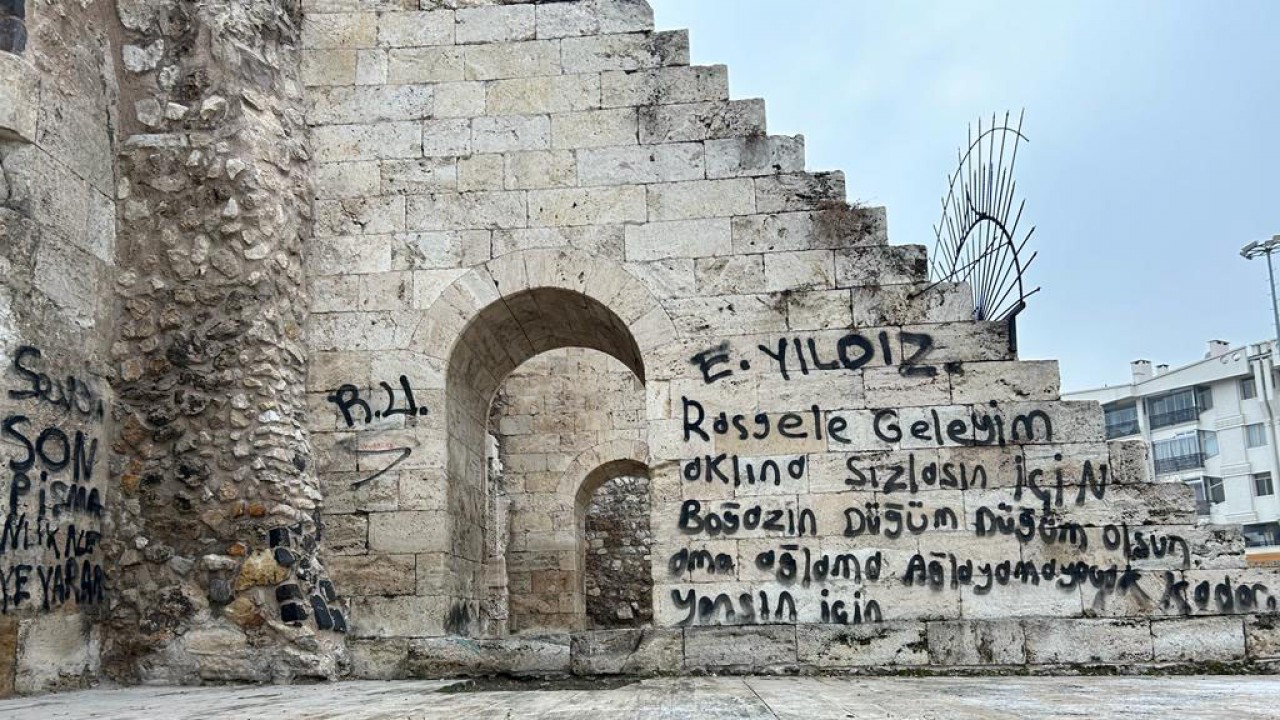 SON
PiSMA
NLIK NE
YE YARAR
R.U.
E. YILDIZ
Rasgele Geleyim
aKlına Sızlasın içiN
Boğazın Düğüm Düğüm olsun
ama ağlama Ağlayamayacak kadar
yansın için